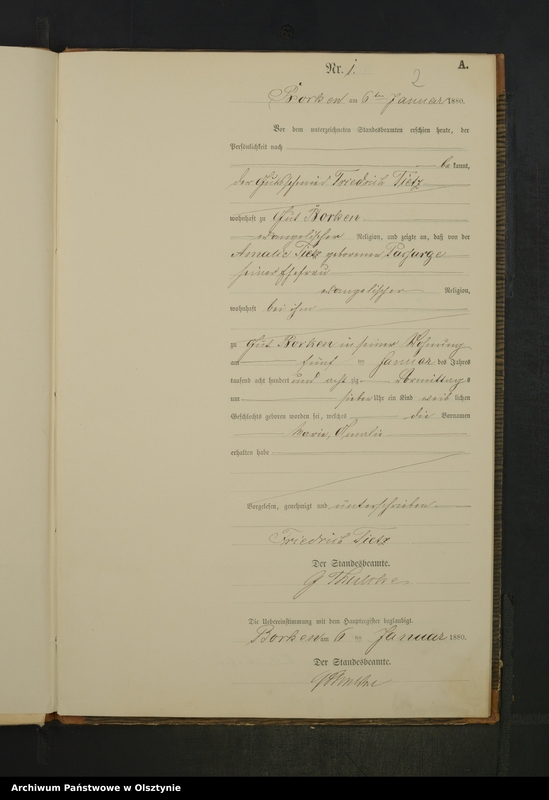 Nr. 1.
2
A.
Borken am 6ten Januar 1880.
Vor dem unterzeichneten Standesbeamten erschien heute, der
Persönlichkeit nach
be kannt,
der Gutsschmied Friedrich Tietz
wohnhaft zu Gut Borken
evangelischer Religion, und zeigte an, daß von der
Amalie Tietz geborenen
seiner Ehefrau
evangelischer Religion,
wohnhaft bei ihm
zu Gut Borken in seiner Wohnung
am fünf ten Januar des Jahres
tausend acht hundert und acht zig Vormittag s
um sieben Uhr ein Kind weib lichen
Geschlechts geboren worden sei, welches die Vornamen
Marie, Amalie
erhalten habe
Vorgelesen, genehmigt und unterschrieben
Friedrich Tietz
Der Standesbeamte.
Die Uebereinstimmung mit dem Hauptregister beglaubigt.
Borken am 6 ten Januar 1880.
Der Standesbeamte.
Archiwum Państwowe w Olsztynie